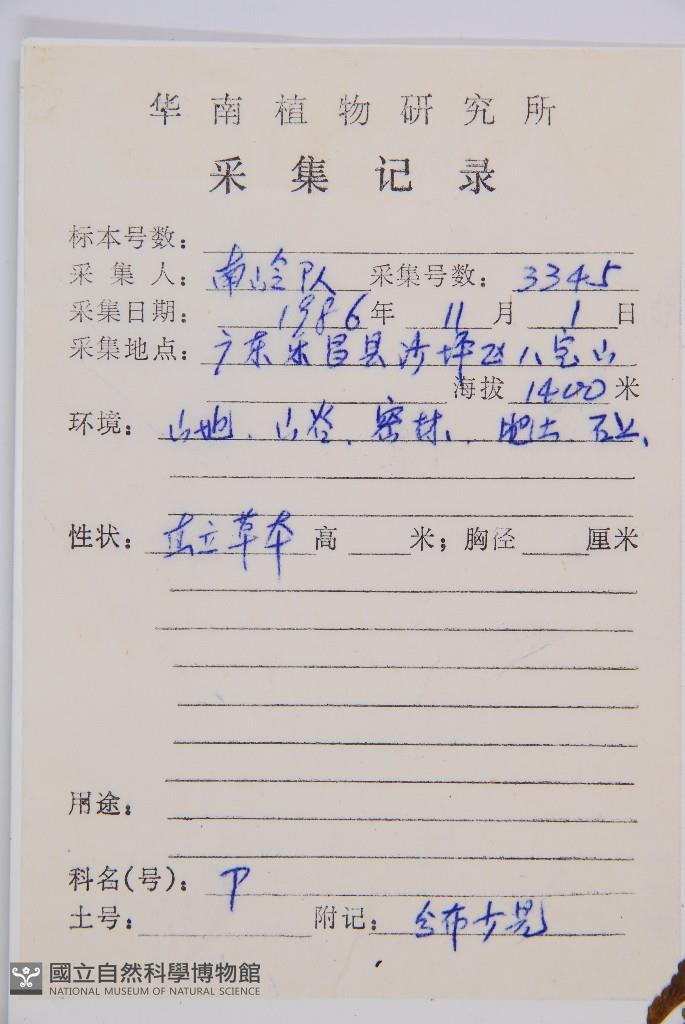 华南植物研究所
采集记录
标本号数：
采集人：南岭队 采集号数：3345
采集日期：1986年11月1日
采集地点：广东乐昌县沙坪区八宝山
海拔1400米
环境：山地、山谷、密林、肥土、
性状：直立草本高 米；胸径 厘米
用途：
科名(号)：P
土号： 附记：分布少见
國立自然科學博物館
NATIONAL MUSEUM OF NATURAL SCIENCE